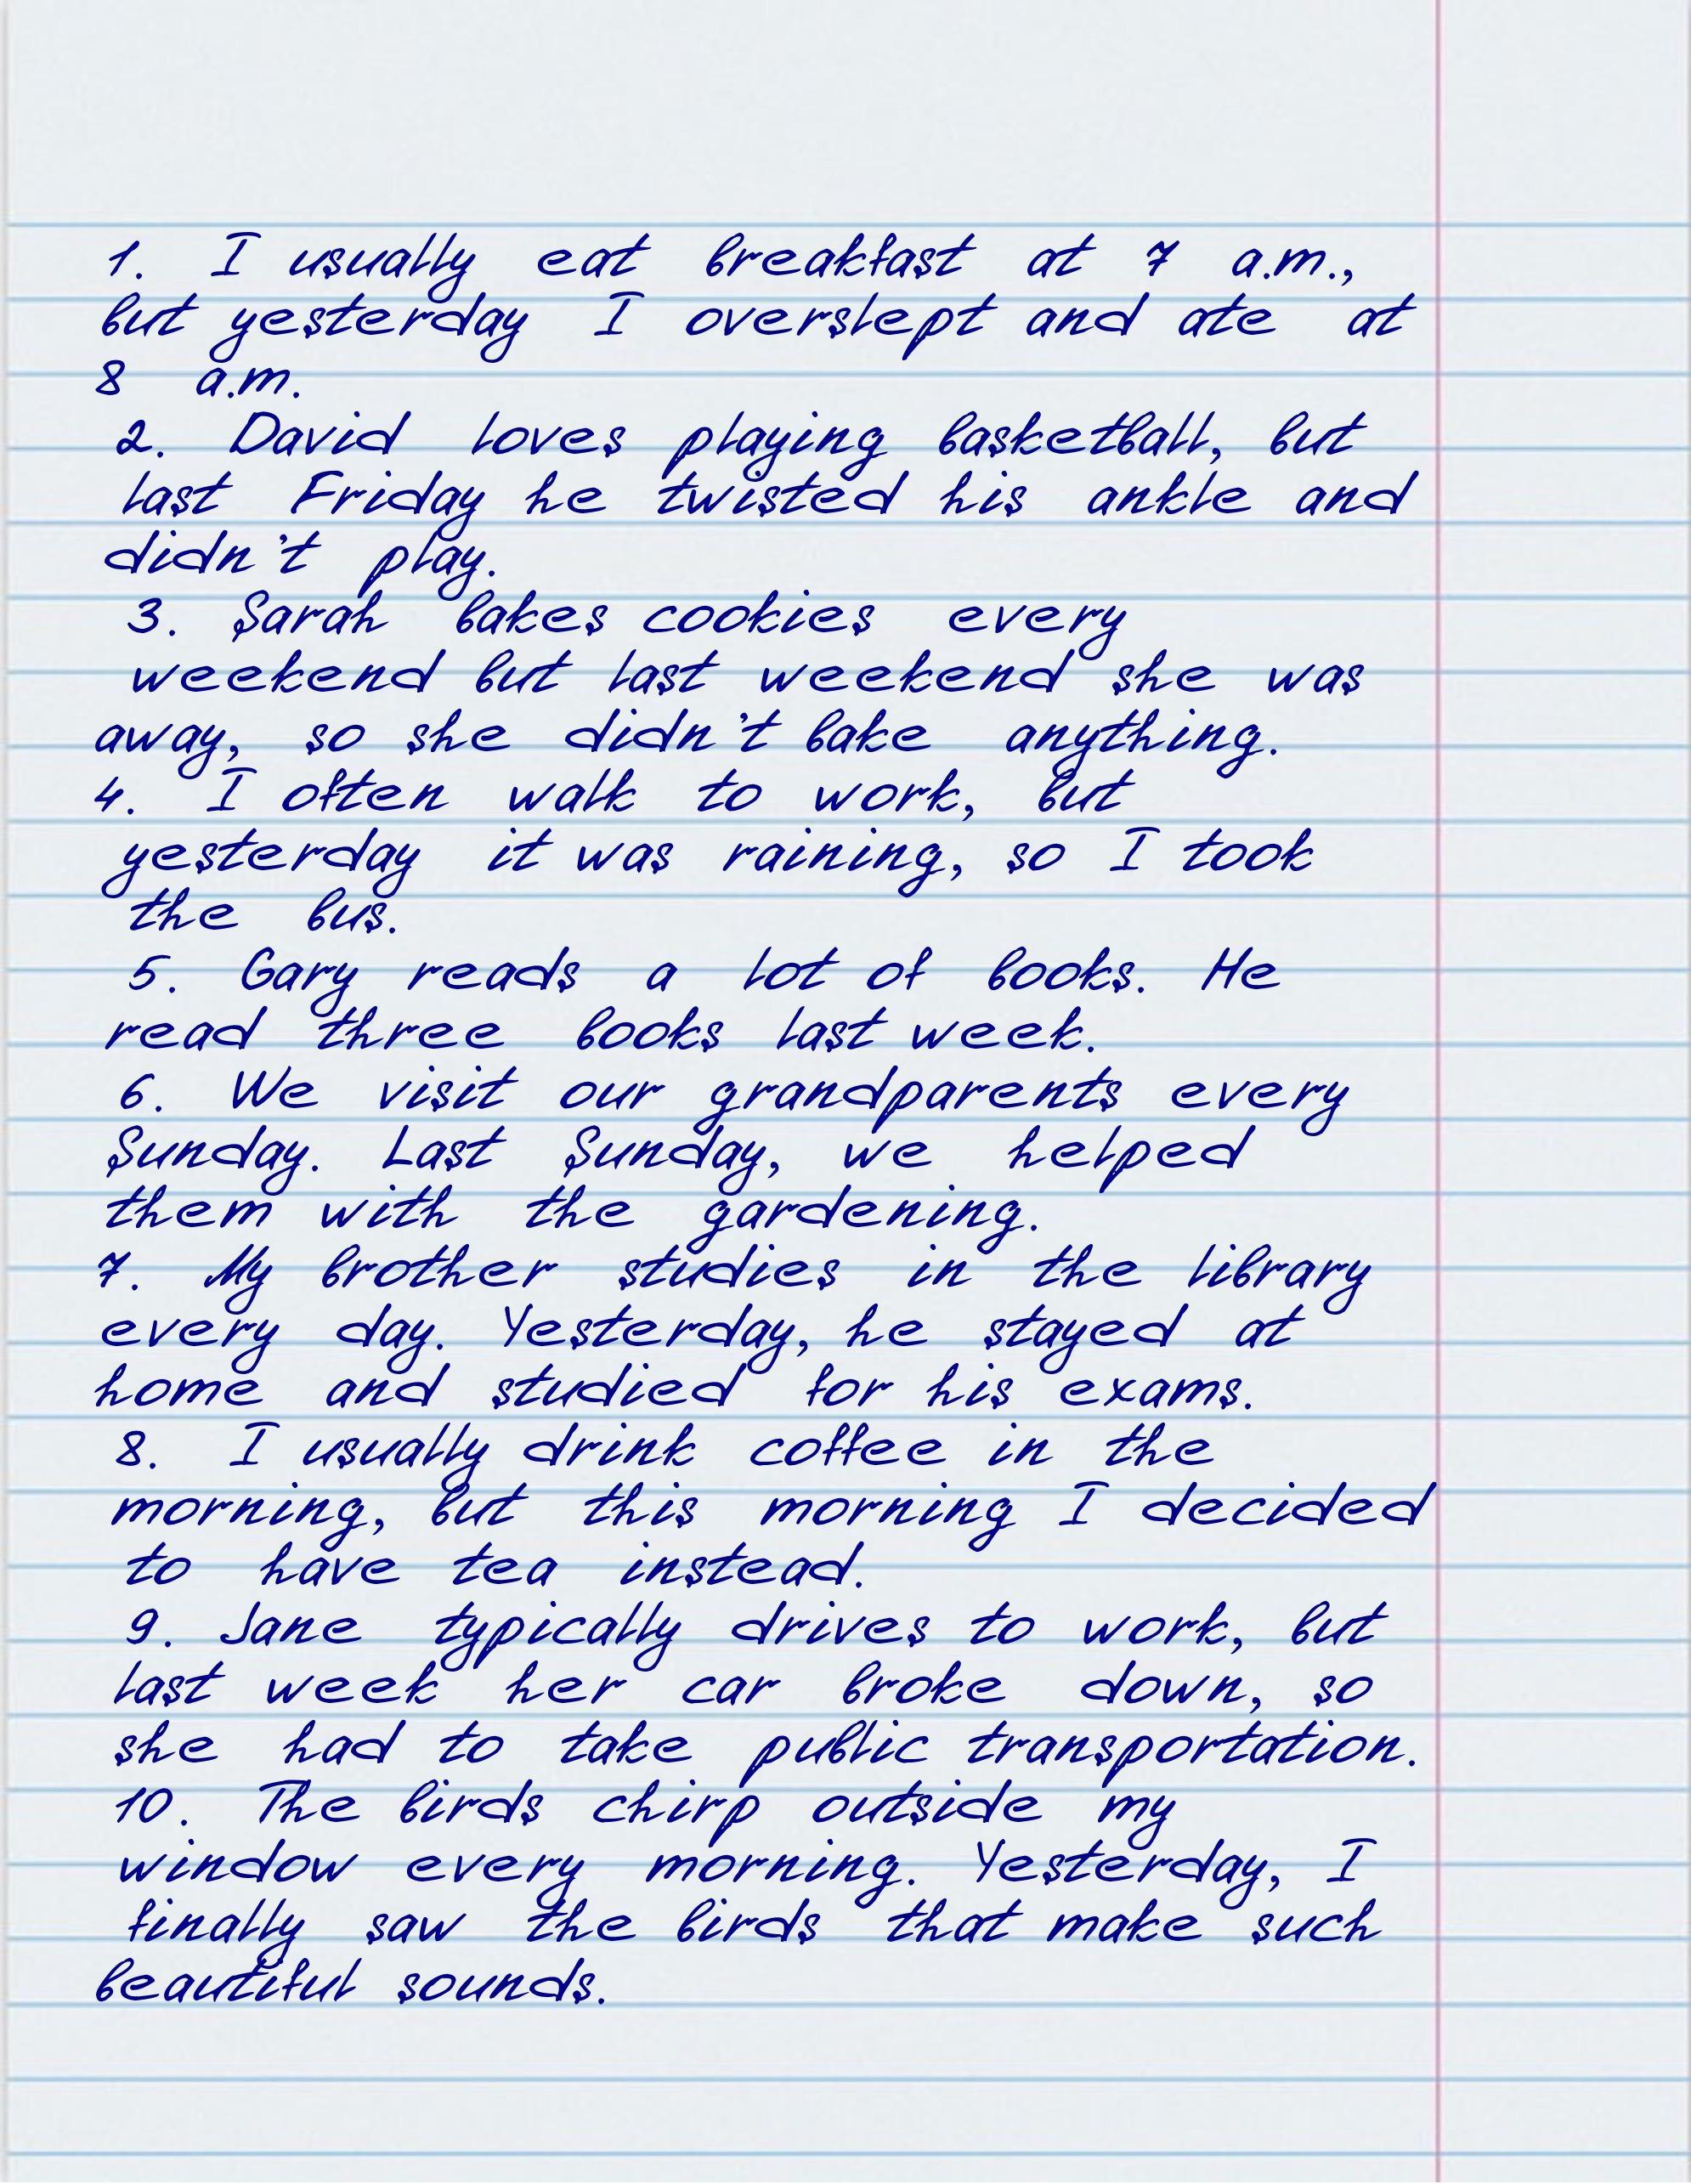 1. I usually eat breakfast at 7 a.m.,
but yesterday I overslept and ate at
8 a.m.
2. David loves playing basketball, but
last Friday he twisted his ankle and
didn't play.
3. Sarah bakes cookies every
weekend but last weekend she was
away, so she didn't bake anything.
4. I often walk to work, but
yesterday it was raining, so I took
the bus.
5. Gary reads a lot of books. He
read three books last week.
6. We visit our grandparents every
Sunday. Last Sunday, we helped
them with the gardening.
7. My brother studies in the library
every day. Yesterday, he stayed at
home and studied for his exams.
8. I usually drink coffee in the
morning, but this morning I decided
to have tea instead.
9. Jane typically drives to work, but
last week her car broke down, so
she had to take public transportation.
10. The birds chirp outside my
window every morning. Yesterday, I
finally saw the birds that make such
beautiful sounds.